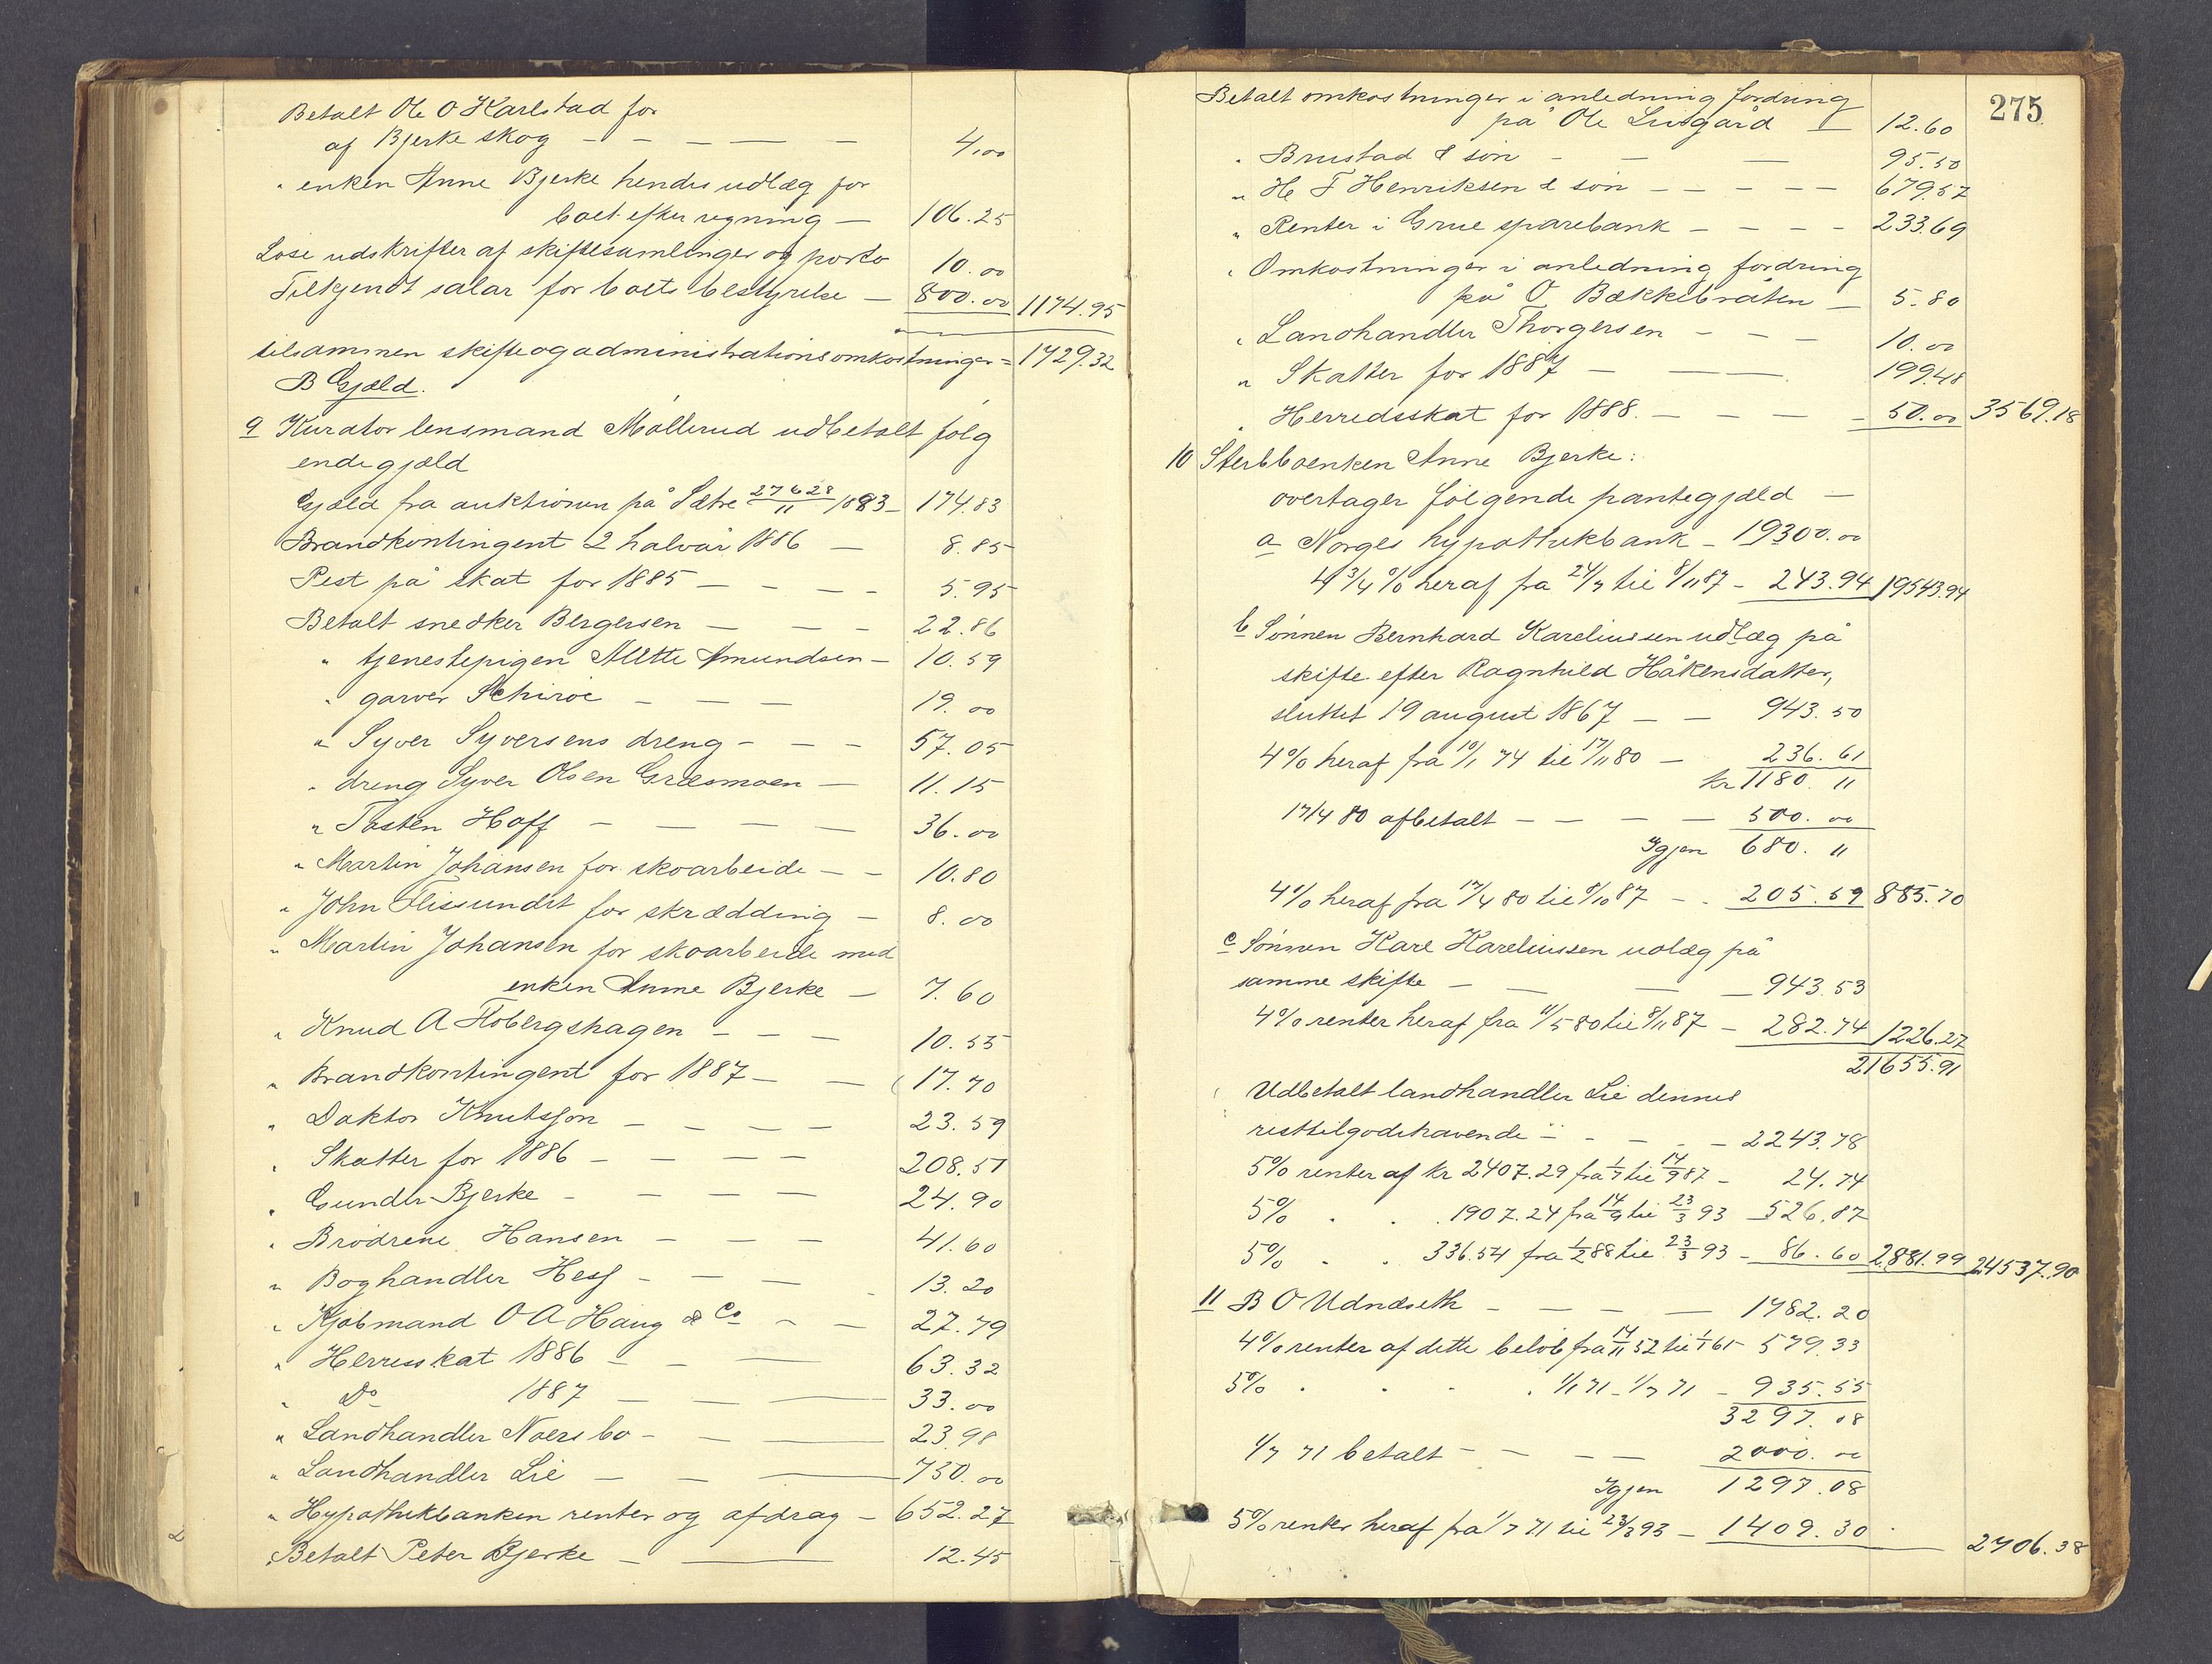 Betalt Ole O Karlstad for
af Bjerke skog - - - - - 4,00
" enken Anne Bjerke hendes udlæg for
boet efter regning - 106.25
Løse udskrifter af skiftesamlinger og porto 10.00
Tilkjendt salær for boets bestyrelse - 800.00 1174.95
tilsammen skifte og administrationsomkostninger = 1729.32
B Gjæld.
a Kurator lensmand Møllerud udbetalt følg
ende gjæld
Gjæld fra auktionen på Sætre 27 & 28/11 1883 - 174.83
Brandkontingent 2 halvår 1886 - 8.85
Rest på skat for 1885 - - - - 5.95
Betalt snedker Bergersen - - - 22.86
" tjenestepigen Mette Amundsen - 10.59
" garver Schirøe - - - 19.00
" Syver Syversens dreng - - - 57.05
" dreng Syver Olsen Græsmoen - 11.15
" Tosten Hoff - - - - 36.00
" Martin Johansen for skoarbeide - - 10.80
" John Flissundet for skrædding - 8.00
" Martin Johansen for skoarbeide med
enken Anne Bjerke - 7.60
" Knud A Flobergshagen - - - 10.55
" Brandkontingent for 1887 - - 17.70
" Doktor Knutsson - - - - 23.59
" Skatter for 1886 - - - - 208.51
" Gunder Bjerke - - - - 24.90
" Brødrene Hansen - - - 41.60
" Boghandler Hess - - - - 13.20
" Kjøbmand O A Haug & Co - - 27.79
" Herresskat 1886 - - - 63.32
" Do 1887 - - - 33.00
" Landhandler Noersbo - - - 23.98
" Landhandler Lie - - - 750.00
" Hypothekbanken renter og afdrag - 652.27
Betalt Peter Bjerke - - 12.45
275
Betalt omkostninger i anledning fordring
på Ole Lusgård - 12.60
" Brustad & søn - - - 95.50
" H F Henriksen & søn - - - - - 679.57
" Renter i Grue sparebank - - - - 233.69
" Omkostninger i anledning fordring
på O Bækkebråten - 5.80
" Landhandler Thorgersen - - - 10.00
" Skatter for 1887 - - 199.48
" Herredsskat for 1888. - - - - 50.00 3569.18
10 Sterbboenken Anne Bjerke:
overtager følgende pantegjæld -
a Norges hypothekbank - 19300.00
4 3/4 % heraf fra 24/7 til 8/11 87 - 243.94 19543.94
b Sønnen Bernhard Kareliussen udlæg på
skifte efter Ragnhild Håkensdatter,
sluttet 19 august 1867 - - 943.50
4% heraf fra 10/1 74 til 17/11 80 - 236.61
kr 1180.11
17/4 80 afbetalt - - - - - 500.00
Igjen 680.11
4% heraf fra 17/4 80 til 8/10 87 - - 205.59 885.70
c Sønnen Karl Kareliussen udlæg på
samme skifte - - - - 943.53
4% renter heraf fra 11/5 80 til 8/11 87 - 282.74 1226.27
21655.91
Udbetalt landhandler Lie dennes
resttilgodehavende - - - - - 2243.78
5% renter af kr 2407.29 fra 1/7 til 14/9 87 - 24.74
5% " " 1907.24 fra 14/9 til 23/3 93 - 526.87
5% " " 336.54 fra 1/2 88 til 23/3 93 - 86.60 2881.99 24537.90
11 B O Udnæseth - - - - 1782.20
4% renter af dette beløb fra 14/11 52 til 1/1 61 - 579.33
5% " " " " 1/1 71 - 1/7 71 - 935.55
3297.08
1/7 71 betalt - - - - 2000.00
Igjen 1297.08
5% renter heraf fra 1/7 71 til 23/3 93 - 1409.30 2706.38